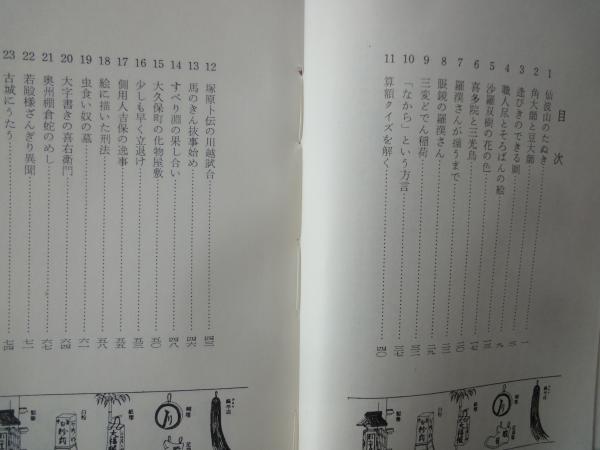 目次
1 仙波山のたぬき
2 角大師と豆大師
3 逢びきのできる厠
4 職人尽とそろばんの絵
5 沙羅双樹の花の色
6 喜多院と三光鳥
7 羅漢さんが揃うまで
8 眼鏡の羅漢さん
9 三変どでん稲荷
10 「なから」という方言
11 算額クイズを解く 四〇
12 塚原卜伝の川越試合 四三
13 馬のきん抜事始め 四六
14 すべり淵の果し合い 四八
15 大久保町の化物屋敷 五〇
16 少しも早く立退け 五三
17 側用人吉保の逸事 五五
18 絵に描いた刑法 五八
19 虫食い奴の墓 六一
20 大字書きの喜右衛門 六四
21 奥州棚倉蛇のめし 六七
22 若殿様ざんぎり異聞 七一
23 古城にうたう 七四